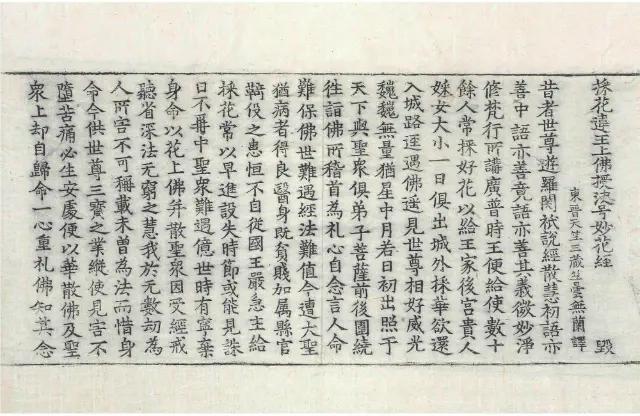 採花違王上佛授決号妙花經 毀
東晉天竺三藏竺曇無蘭譯
昔者世尊遊羅閱祇說經散慧初語亦
善中語亦善竟語亦善其義微妙淨
修梵行所講廣普時王使給使數十
餘人常採好花以給王家後宮貴人
婇女大小一日俱出城外採華欲還
入城路逕遇佛遥見世尊相好威光
巍巍無量猶星中月若日初出照于
天下與聖衆俱弟子菩薩前後圍繞
往詣佛所稽首為礼心自念言人命
難保佛世難遇經法難值今遭大聖
猶病者得良醫身既貧賤加属縣官
羇役之患恒不自從國王嚴急主給
採花常以早進設失時節或能見誅
曰不尋中聖衆難遇億世時有寧棄
身命以花上佛并散聖衆因受經戒
聽省深法无窮之慧我於无數劫為
人所害不可稱載未曽為法而惜身
命今供世尊三寳之業縱使見害不
墮苦痛必生安處便以華散佛及聖
衆上却自歸命一心重礼佛知其念